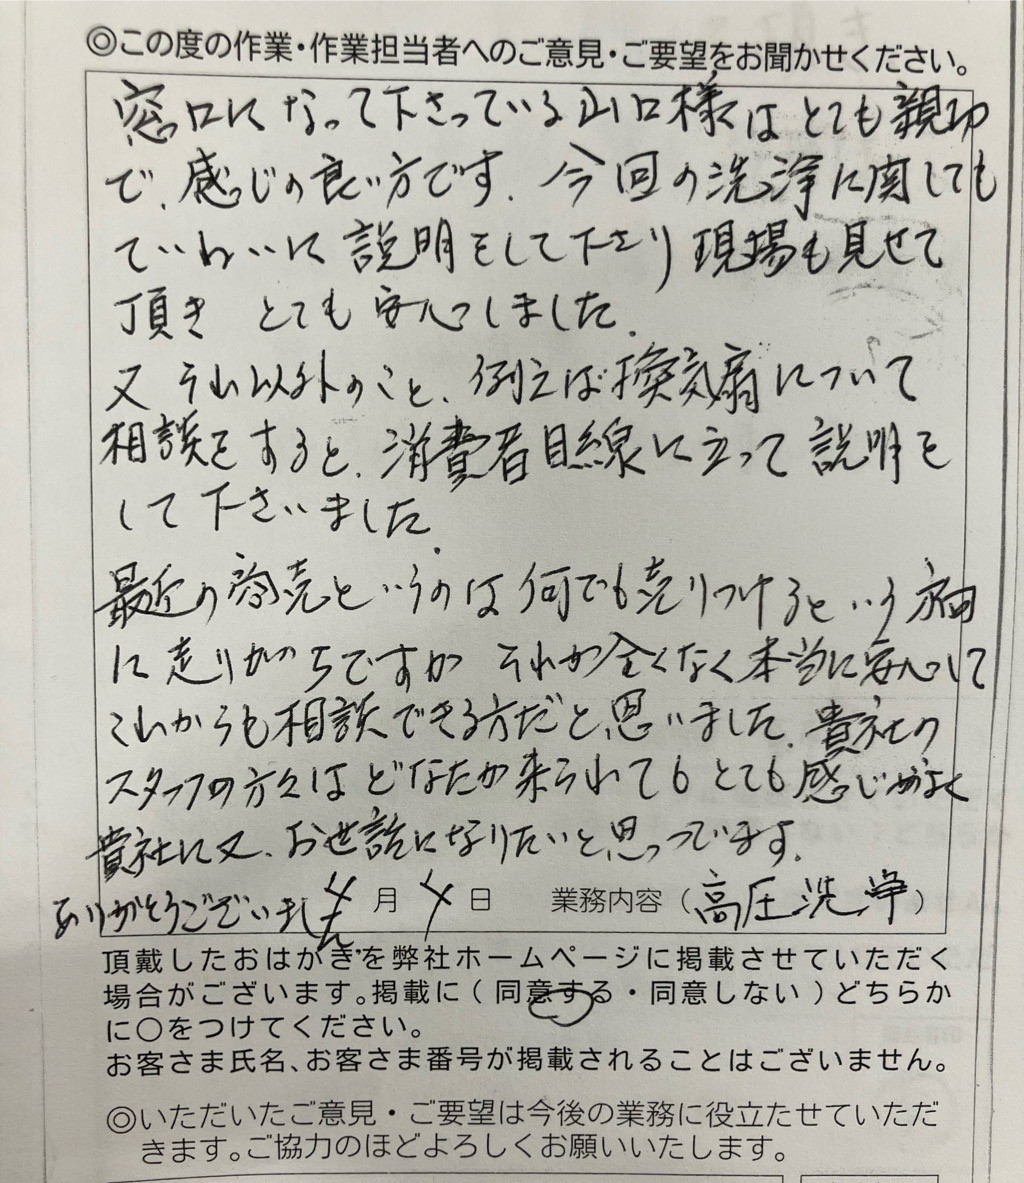 ◎この度の作業・作業担当者へのご意見・ご要望をお聞かせください。
窓口になって下さっている山口様はとても親切
で、感じの良い方です。今回の洗浄に関しても
ていねいに説明をして下さり現場も見せて
頂き とても安心しました。
又 それ以外のこと、例えば換気扇について
相談をすると、消費者目線に立って説明を
して下さいました。
最近の商売というのは何でも売りつけるという方面
に走りがちですが それが全くなく本当に安心して
これからも相談できる方だと思いました。貴社の
スタッフの方々はどなたか来られてもとても感じがよく
貴社に又、お世話になりたいと思っています。
ありがとうございました
4月4日 業務内容（高圧洗浄）
頂戴したおはがきを弊社ホームページに掲載させていただく
場合がございます。掲載に（同意する・同意しない）どちらか
に○をつけてください。
お客さま氏名、お客さま番号が掲載されることはございません。
◎いただいたご意見・ご要望は今後の業務に役立たせていただ
きます。ご協力のほどよろしくお願いいたします。